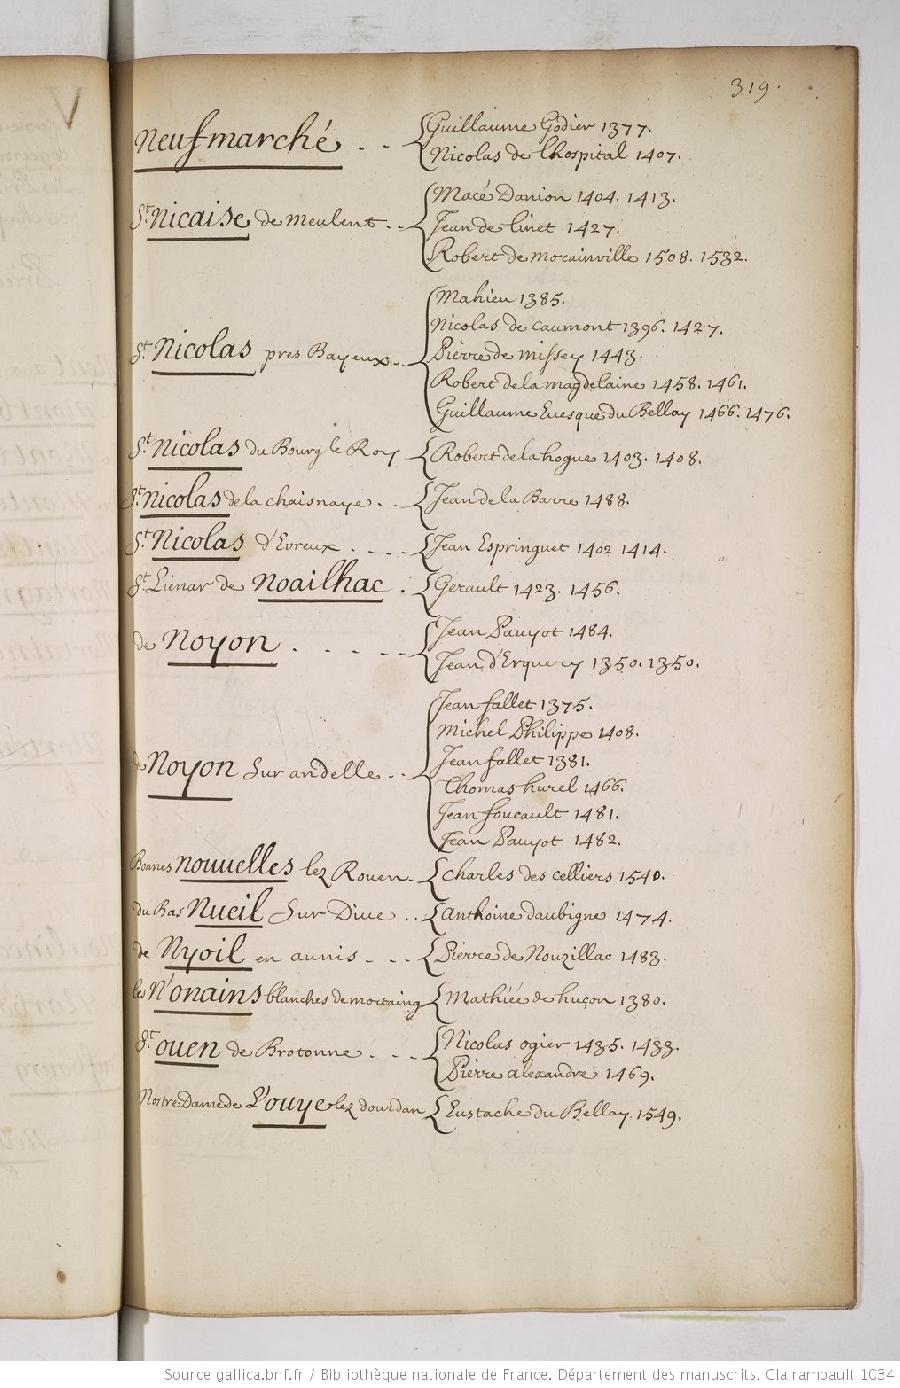 319.
Neufmarché . . { Guillaume Godier 1377.
Nicolas de Lhospital 1407.
St Nicaise de Meulent . . { Macé Danion 1404. 1413.
Jean de Linet 1427.
Robert de Morainville 1508. 1532.
St Nicolas pres Bayeux . . { Mahieu 1385.
Nicolas de Caumont 1396. 1427.
Pierre de Missey 1443.
Robert de la Magdelaine 1458. 1461.
Guillaume Euesque du Bellay 1466. 1476.
St Nicolas du Bourg le Roy { Robert de la hogue 1403. 1408.
St Nicolas de la chaisnaye . . { Jean de la Barre 1488.
St Nicolas d'Evreux . . . . { Jean Espringuet 1402 1414.
St Lienar de Noailhac . { Gerault 1423. 1456.
de Noyon . . . . . { Jean Pauyot 1484.
Jean d'Erquery 1350. 1350.
de Noyon sur andelle . . { Jean fallet 1375.
Michel Philippe 1408.
Jean fallet 1381.
Thomas hurel 1466.
Jean foucault 1481.
Jean Pauyot 1482.
Bonnes nouuelles lez Rouen . { Charles des Celliers 1540.
du Bas Nueil sur Diue . . { Anthoine daubigne 1474.
de Nyoil en aunis . . . { Pierre de Nouzillac 1483.
les Nonains blanches de mortaing { Mathiée de huçon 1380.
St Ouen de Brotonne . . . { Nicolas ogier 1435. 1433.
Pierre alexandre 1469.
Nostre Dame de L'ouye lez dourdan { Eustache du Bellay 1549.
Source gallica.bnf.fr / Bibliothèque nationale de France. Département des manuscrits. Clairambault 1034